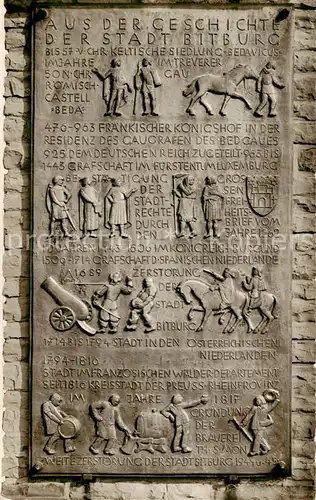 AUS DER GESCHICHTE
DER STADT BITBURG
BIS 57 V. CHR. KELTISCHE SIEDLUNG "BEDAVICUS
IM JAHRE IM TREVERER
50 N. CHR. GAU
RÖMISCH.
CASTELL
"BEDA"
476-963 FRÄNKISCHER KÖNIGSHOF IN DER
RESIDENZ DES GAUGRAFEN DES BEDGAUES
925 DEM DEUTSCHEN REICH ZUGETEILT 963 BIS
1443 GRAFSCHAFT IM FÜRSTENTUM LUXEMBURG
BESTÄTIGUNG GROSSEN
DER FREI
STADT- HEITS
RECHTE BRIEF VOM
DURCH JAHRE
DEN
1443 1506 IM KÖNIGREICH BURGUND
1506-1714 GRAFSCHAFT D. SPANISCHEN NIEDERLANDE
1689 ZERSTÖRUNG
DER
STADT
BITBURG
1714 BIS 1794 STADT IN DEN ÖSTERREICHISCHEN
NIEDERLANDEN
1794-1816
STADT IM FRANZÖSISCHEN WÄLDERDEPARTEMENT
SEIT 1816 KREISSTADT DER PREUSS. RHEINPROVINZ
IM JAHRE 1817
GRÜNDUNG
DER
BRAUEREI
TH. SIMON
ZWEITE ZERSTÖRUNG DER STADT BITBURG 1944